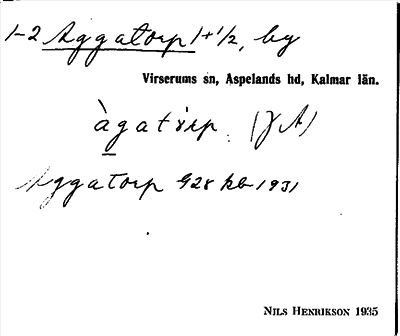 1-2 Aggatorp 1+1/2, by
Virserums sn, Aspelands hd, Kalmar län.
àgatòrp. (JA)
Aggatorp G28 kb 1931
NILS HENRIKSON 1935